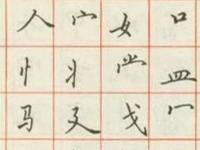 人 宀 女 口
忄 丬 龸 皿
马 廴 戈 冖